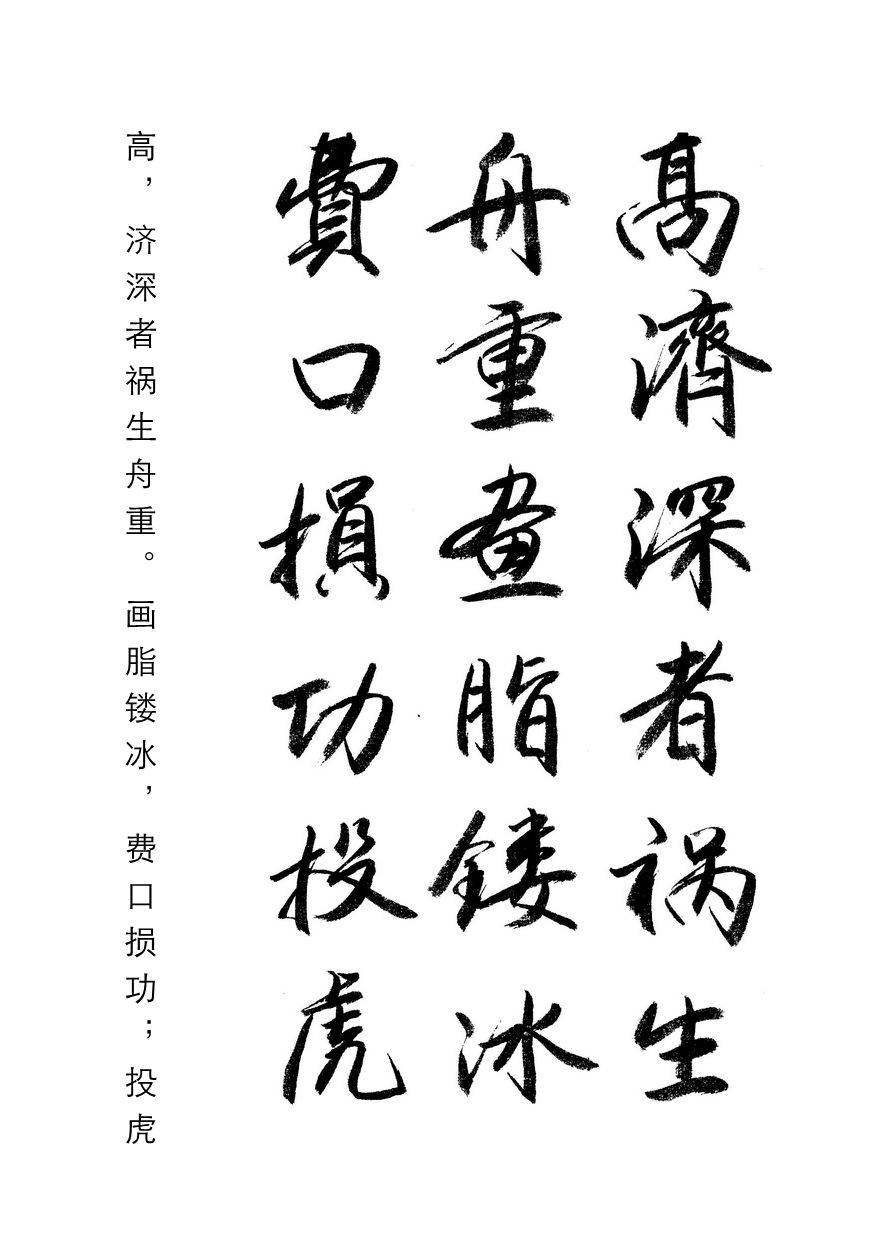 高濟深者祸生
舟重畫脂镂冰
費口損功投虎
高，济深者祸生舟重。画脂镂冰，费口损功；投虎